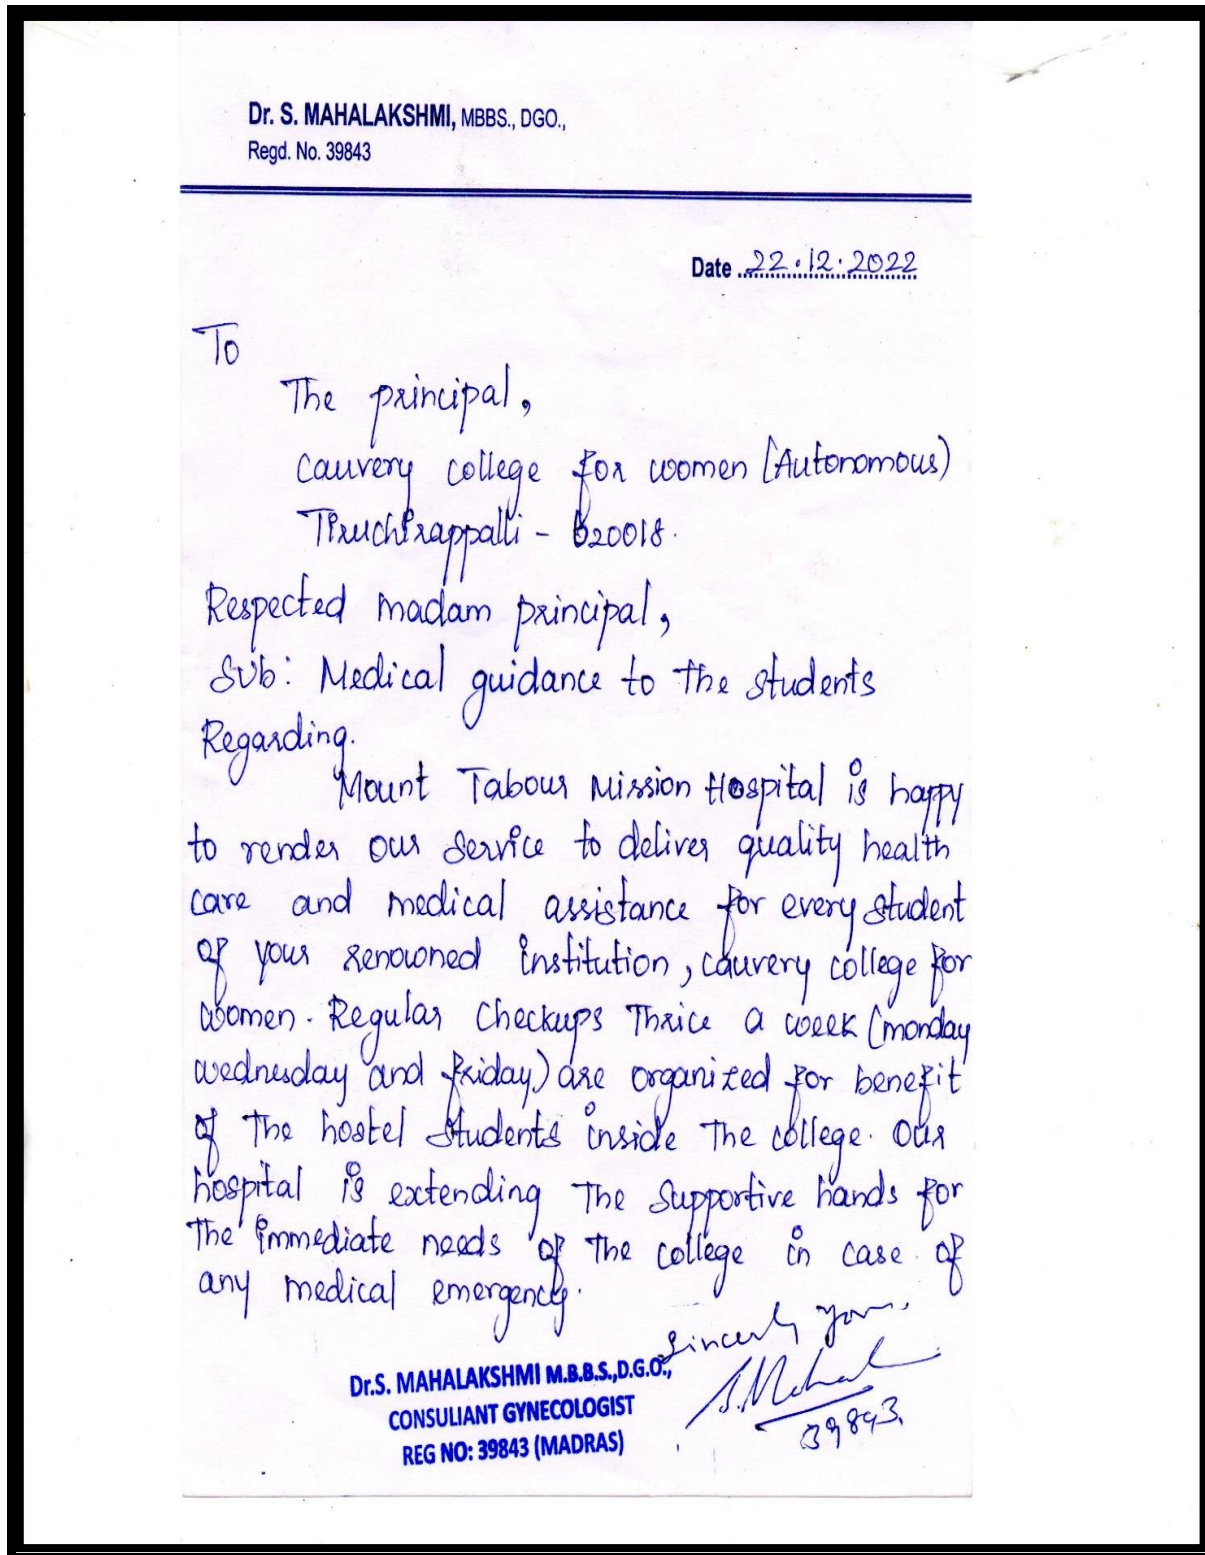 Dr. S. MAHALAKSHMI, MBBS., DGO.,
Regd. No. 39843
Date 22.12.2022
To
The principal,
Cauvery college for women (Autonomous)
Tiruchirappalli - 620018.
Respected madam principal,
Sub: Medical guidance to the students
Regarding.
Mount Tabour Mission Hospital is happy
to render our service to deliver quality health
care and medical assistance for every student
of your renowned institution, cauvery college for
women. Regular checkups Thrice a week (monday
wednesday and friday) are organized for benefit
of the hostel students inside the college. Our
hospital is extending the supportive hands for
the immediate needs of the college in case of
any medical emergency.
Sincerly yours,
Dr.S. MAHALAKSHMI M.B.B.S.,D.G.O.,
CONSULIANT GYNECOLOGIST
REG NO: 39843 (MADRAS)
S. Mahal
39843.